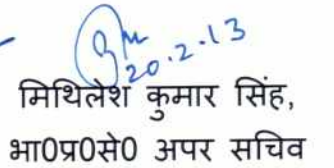 20.2.13
मिथिलेश कुमार सिंह,
भा0प्र0से0 अपर सचिव